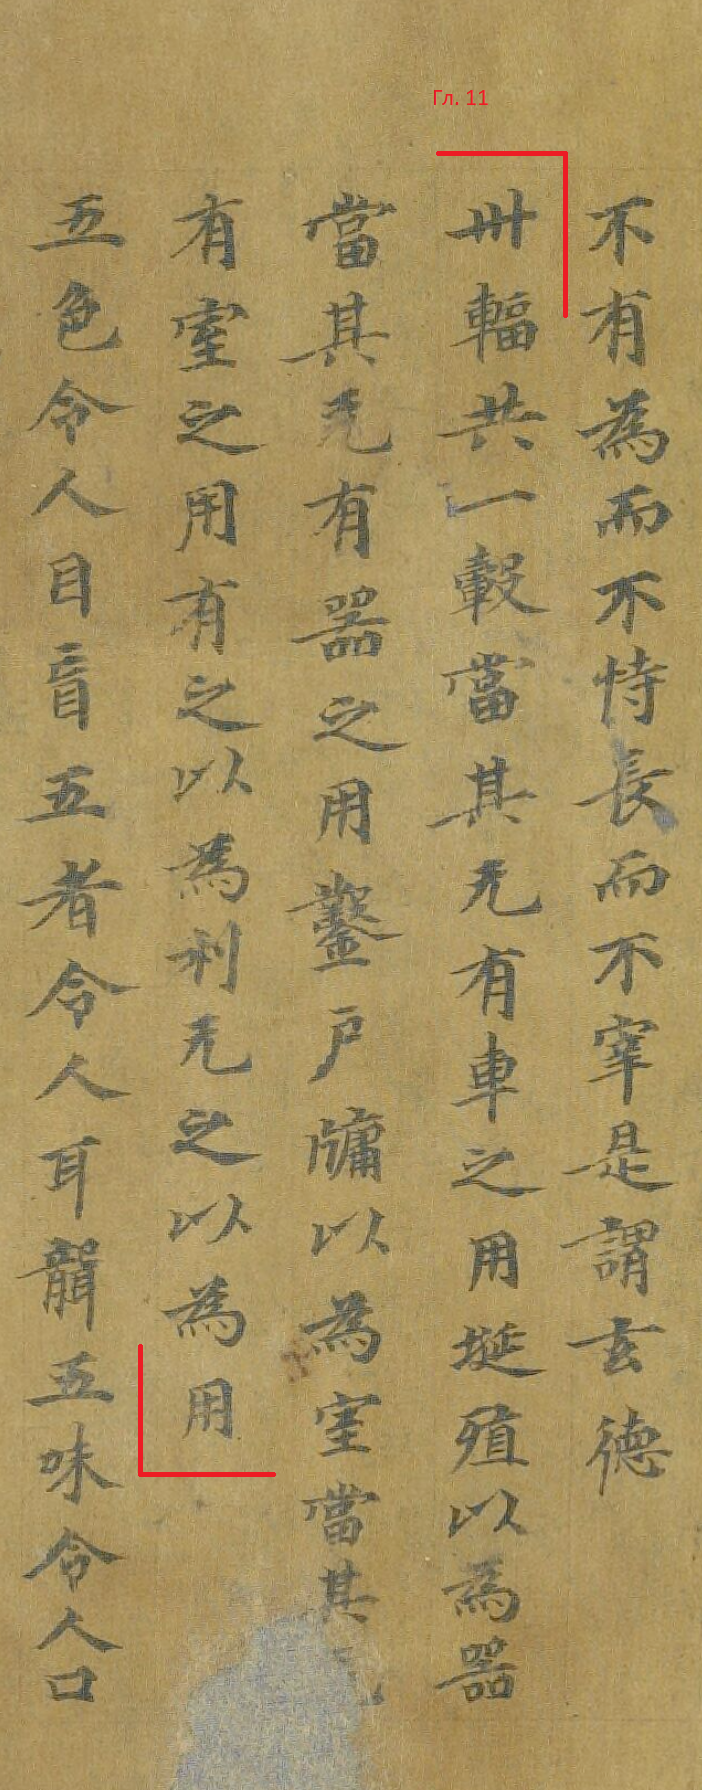 Гл. 11
不有為而不恃長而不宰是謂玄德
卅輻共一轂當其无有車之用埏殖以為器
當其无有器之用鑿户牖以為室當其无
有室之用有之以為利无之以為用
五色令人目盲五者令人耳聾五味令人口